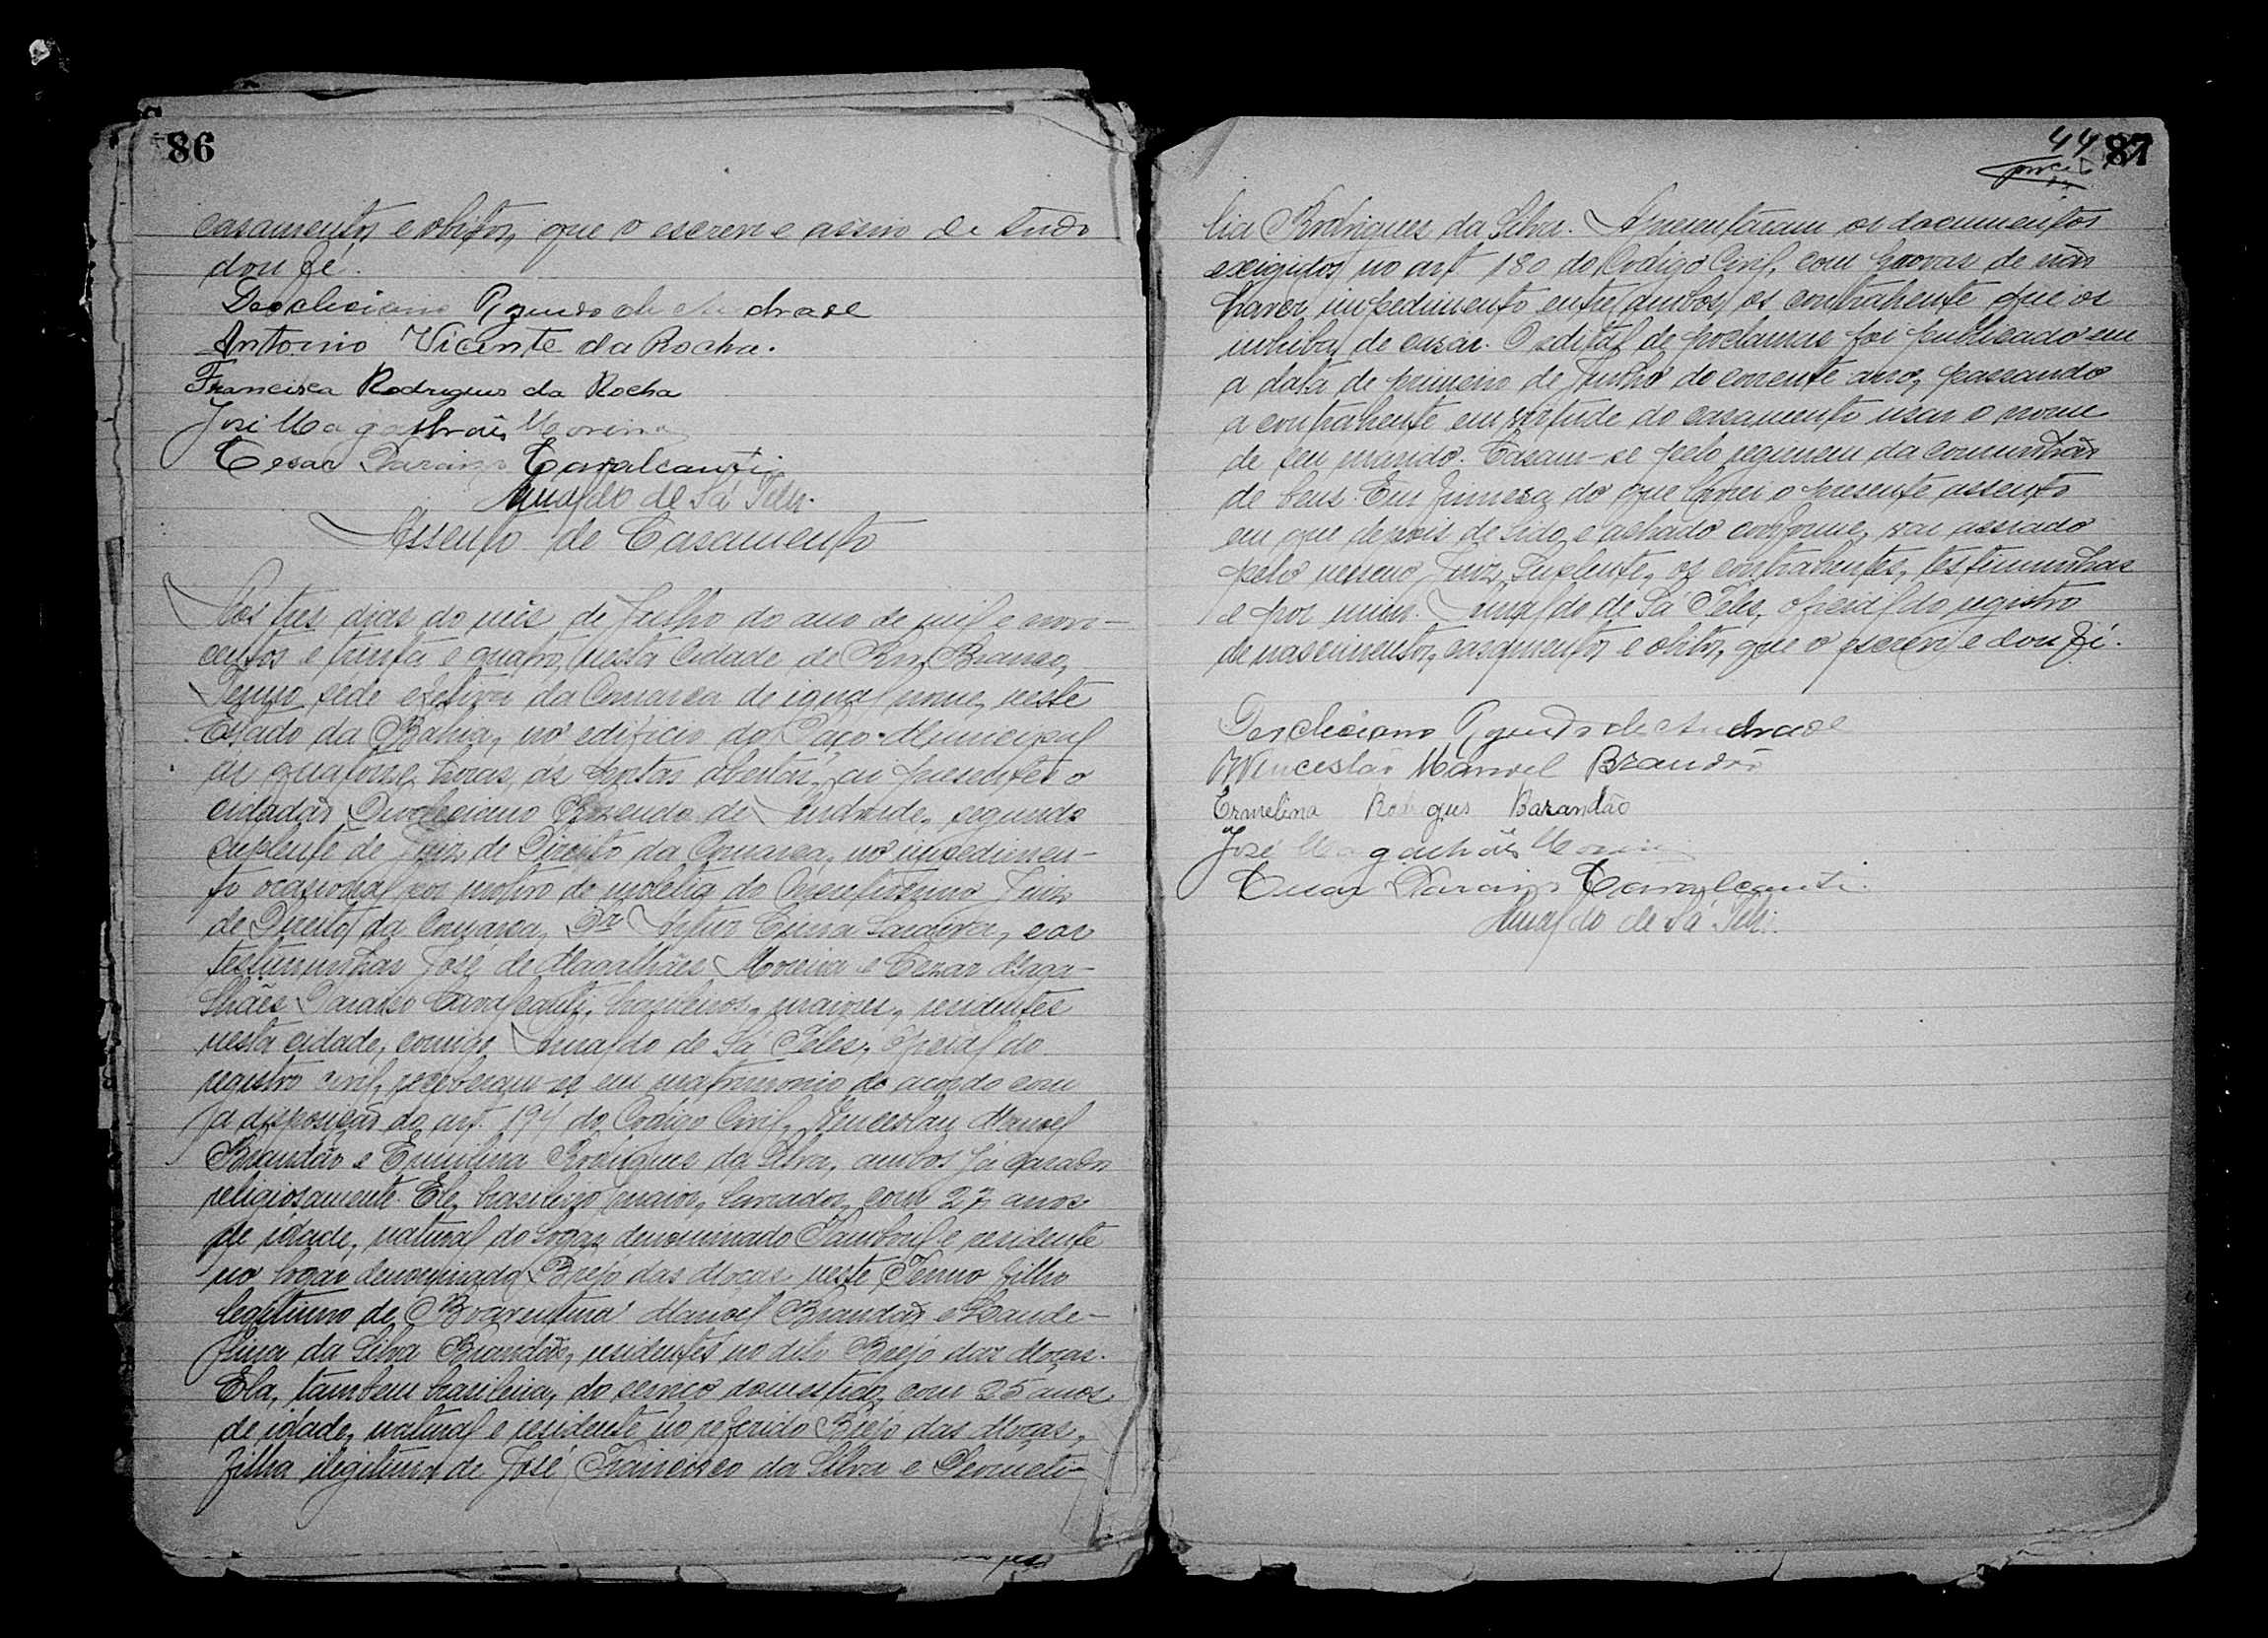 86
casamentos e obitos, que o escrevi e assino de tudo
dou fé.
Deocleciano Rozendo de Andrade
Antonio Vicente da Rocha.
Francisca Rodrigues da Rocha
José Magalhães Moreira
Cesar Paraizo Cavalcanti
Arnaldo de Sá Teles.
Assento de Casamento
Aos tres dias do mês de Julho do ano de mil e nove-
centos e trinta e quatro, nesta Cidade de Rio Branco,
Termo séde efetiva da Comarca de igual nome, neste
Estado da Bahia, no edificio do Paço Municipal
ás quatorze horas, as portas abertas, ai presentes o
cidadão Deocleciano Rozendo de Andrade, segundo
suplente de Juiz de Direito da Comarca, no impedimen-
to ocasional por motivo de molestia do Juiz
de Direito da Comarca, Dr e as
testimunhas José de Magalhães Moreira e Cezar Maga-
lhães Paraizo Cavalcanti, brasileiros, maiores, residentes
nesta cidade, comigo Arnaldo de Sá Teles, oficial do
registro civil, receberam-se em matrimonio de acordo com
a disposição do art. 194 do Codigo Civil, Venceslau Manoel
Brandão e Ermilina Rodrigues da Silva, ambos já casados
religiosamente. Ele, brasileiro, maior, lavrador, com 27 anos
de idade, natural do logar denominado Tamboril e residente
no logar denominado Brejo das Moças neste Termo filho
legitimo de Boaventura Manoel Brandão e Laude-
lina da Silva Brandão, residentes no dito Brejo das Moças.
Ela, tambem brasileira, do serviço domestico, com 25 anos
de idade, natural e residente no referido Brejo das Moças,
filha ilegitima de José Francisco da Silva e
44 87
lia Rodrigues da Silva. Apresentaram os documentos
exigidos no art 180 do Codigo Civil, com provas de não
haver impedimento entre ambos os contrahente que os
inhiba de casar. O edital de proclamas foi publicado em
a data de primeiro de Junho do corrente ano, passando
a contrahente em virtude do casamento usar o nome
de seu marido. Casam-se pelo regimem da comunhão
de bens. Em firmeza do que lavrei o presente assento
em que depois de lido e achado conforme, vai assinado
pelo mesmo Juiz Suplente, os contrahentes, testimunhas
e por mim. Arnaldo de Sá Teles, oficial do registro
de nascimentos, casamentos e obitos, que o escrevi e dou fé.
Deocleciano Rozendo de Andrade
Wenceslão Manoel Brandão
Ermelina Rodrigus Barandão
José Magalhães Moreira
Cesar Paraizo Cavalcanti.
Arnaldo de Sá Teles.